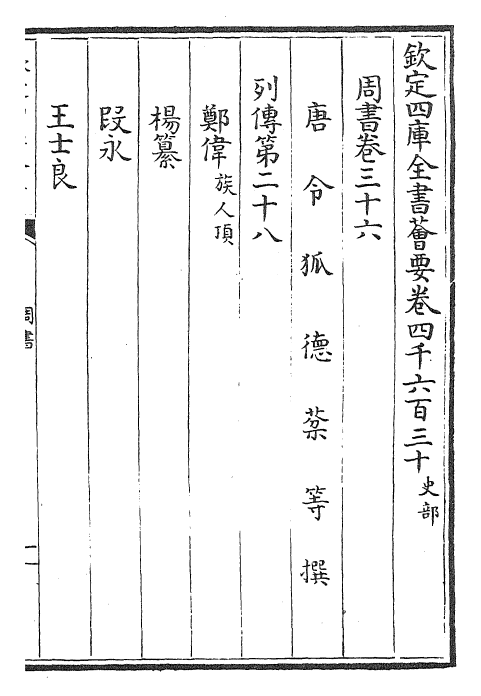 欽定四庫全書薈要卷四千六百三十史部
周書卷三十六
唐令狐德棻等撰
列傳第二十八
鄭偉族人頂
楊纂
段永
王士良
周書
一